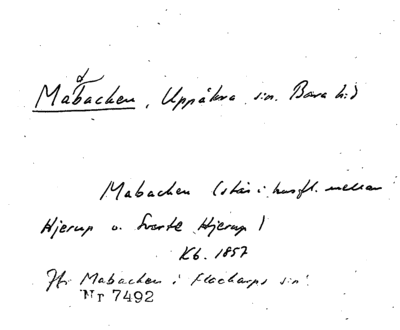 d
Mabacken, Uppåkra sn. Bara hd
Mabacken (står i husfl. mellan
Hjerup o. Svarte Hjerup)
Kb. 1857
Jfr Mabacken i Flackarps sn.
Nr 7492